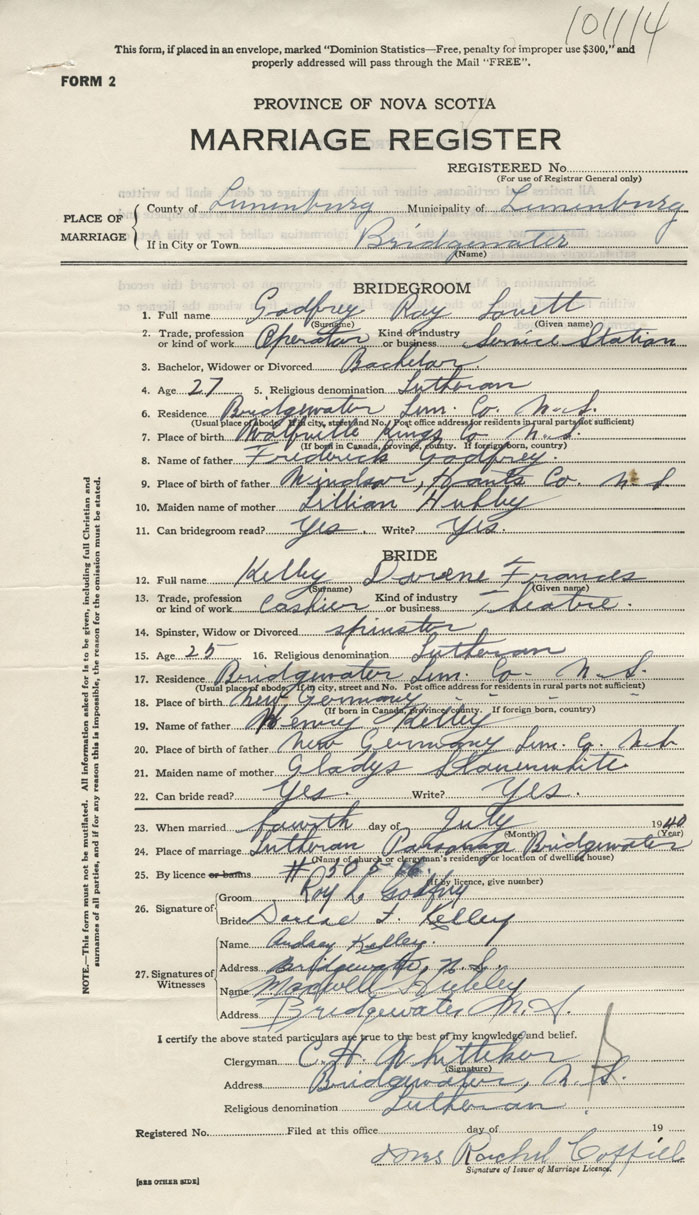 101114
This form, if placed in an envelope, marked "Dominion Statistics—Free, penalty for improper use $300," and
properly addressed will pass through the Mail "FREE".
FORM 2
PROVINCE OF NOVA SCOTIA
MARRIAGE REGISTER
REGISTERED No.
(For use of Registrar General only)
PLACE OF MARRIAGE
County of Lunenburg Municipality of Lunenburg
If in City or Town Bridgewater
(Name)
BRIDEGROOM
1. Full name Godfrey Roy Lovett
(Surname) (Given name)
2. Trade, profession or kind of work Operator Kind of industry or business Service Station
3. Bachelor, Widower or Divorced Bachelor
4. Age 27 5. Religious denomination Lutheran
6. Residence Bridgewater Lun. Co. N.S.
(Usual place of abode. If in city, street and No. Post office address for residents in rural parts not sufficient)
7. Place of birth Wolfville Kings Co. N.S.
(If born in Canada, province, county. If foreign born, country)
8. Name of father Frederick Godfrey.
9. Place of birth of father Windsor, Hants Co. N.S
10. Maiden name of mother Lillian
11. Can bridegroom read? Yes. Write? Yes.
BRIDE
12. Full name Kelley Dorene Frances
(Surname) (Given name)
13. Trade, profession or kind of work Cashier Kind of industry or business Theatre.
14. Spinster, Widow or Divorced spinster
15. Age 25 16. Religious denomination Lutheran
17. Residence Bridgewater Lun. Co. N.S.
(Usual place of abode. If in city, street and No. Post office address for residents in rural parts not sufficient)
18. Place of birth New Germany
(If born in Canada, province, county. If foreign born, country)
19. Name of father Henry Kelley
20. Place of birth of father New Germany Lun. Co. N.S.
21. Maiden name of mother Gladys
22. Can bride read? Yes. Write? Yes.
23. When married fourth day of July 1940
(Month) (Year)
24. Place of marriage Lutheran Parsonage Bridgewater
(Name of church or clergyman's residence or location of dwelling house)
25. By licence or banns #
(If by licence, give number)
26. Signature of
Groom Roy L. Godfrey
Bride Dorene F. Kelley
27. Signatures of Witnesses
Name Audrey Kelley.
Address Bridgewater, N.S.
Name Maxwell
Address Bridgewater N.S.
I certify the above stated particulars are true to the best of my knowledge and belief.
Clergyman C. H. Whitteker
(Signature)
Address Bridgewater, N.S.
Religious denomination Lutheran
Registered No. Filed at this office day of 19
Mrs Rachel Coffill
Signature of Issuer of Marriage Licence.
[SEE OTHER SIDE]
NOTE.—This form must not be mutilated. All information asked for is to be given, including full Christian and
surnames of all parties, and if for any reason this is impossible, the reason for the omission must be stated.